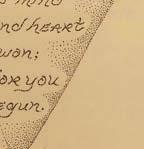 mind
nd heart
won;
for you
egun.